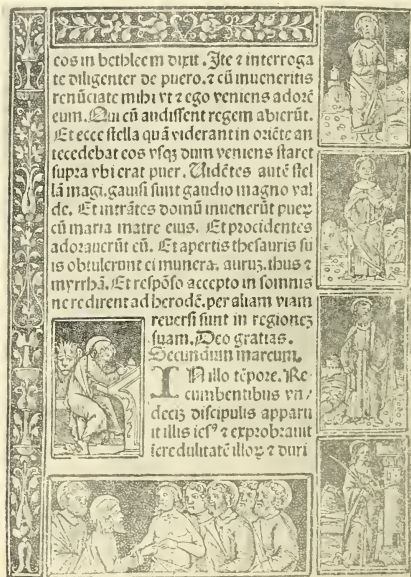 eos in bethleem dixit. Ite ⁊ interroga
te diligenter de puero. ⁊ cū inueneritis
renūciate mihi vt ⁊ ego veniens adorē
eum. Qui cū audissent regem abierūt.
Et ecce stella quā viderant in oriēte an
tecedebat eos vsqꝫ dum veniens staret
supra vbi erat puer. Uidētes autē stel
lā magi. gauisi sunt gaudio magno val
de. Et intrātes domū inuenerūt pueꝝ
cū maria matre eius. Et procidentes
adorauerūt eū. Et apertis thesauris su
is obtulerunt ei munera. auruꝫ. thus ⁊
myrrhā. Et respōso accepto in somnis
ne redirent ad herodē. per aliam viam
reuersi sunt in regioneꝫ
suam. Deo gratias.
Secundum marcum.
IN illo tēpore. Re
cumbentibus vn/
deciꝫ discipulis apparu
it illis iesꝰ ⁊ exprobrauit
īcredulitatē illoꝝ ⁊ duri